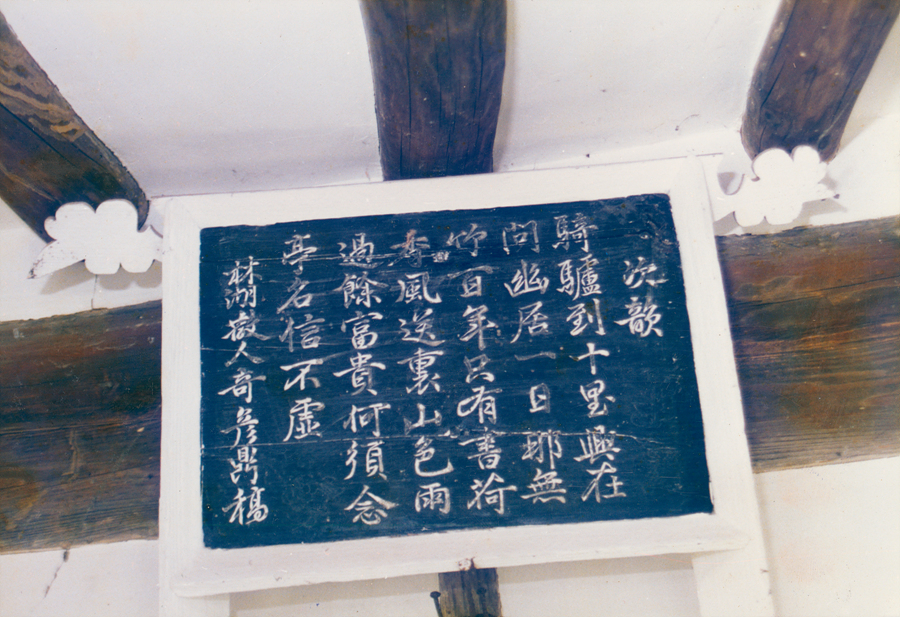 次韻
騎驢到十里興在
問幽居一日耶無
竹百年只有書荷
香風送裏山色雨
過餘富貴何須念
亭名信不虛
林湖人奇彦鼎稿